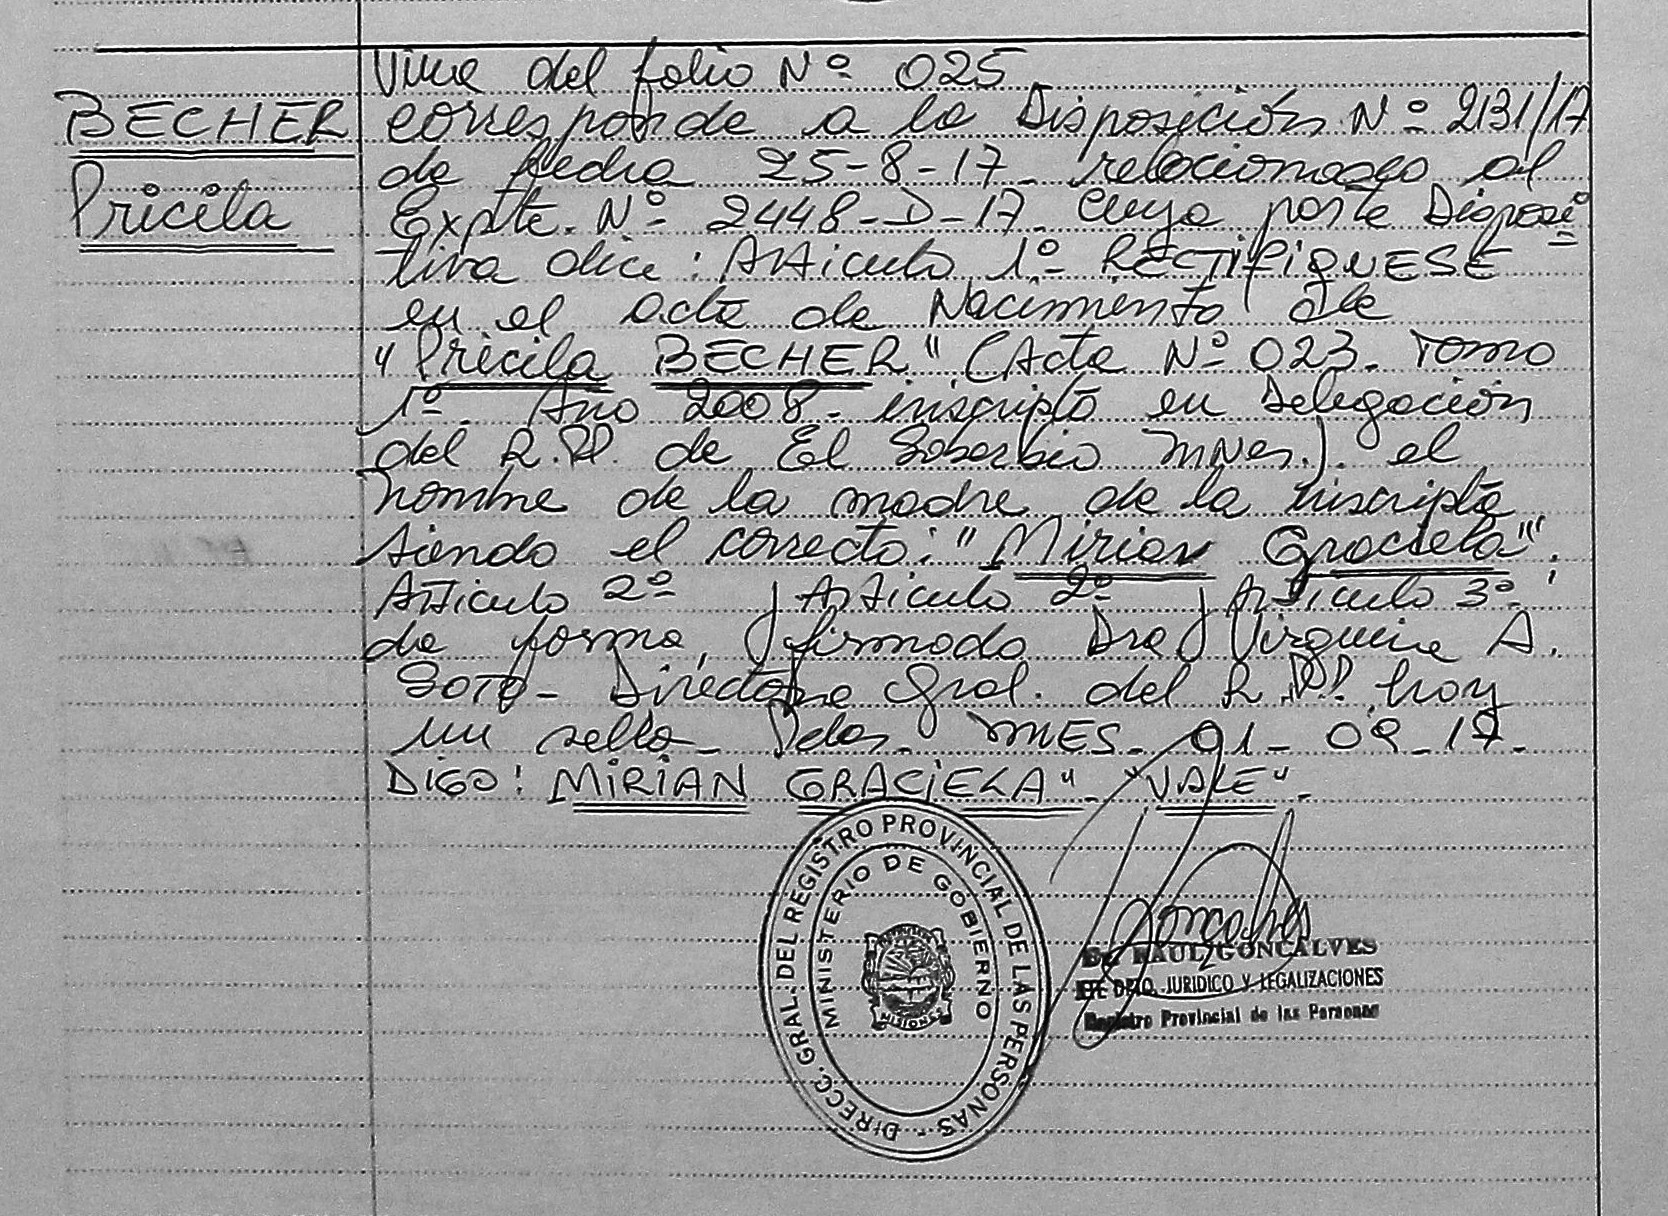 BECHER
Pricila
Viene del folio Nº 025
corresponde a la Disposición Nº 2131/17
de fecha 25-8-17 relacionado al
Expte. Nº 2448-D-17. Cuya parte Disposi
tiva dice: Artículo 1º RECTIFIQUESE
en el acta de Nacimiento de
"Pricila BECHER" (Acta Nº 023. Tomo
1º. Año 2008- inscripta en Delegación
del R.P.P. de El Soberbio Mnes.). el
nombre de la madre de la inscripta
siendo el correcto: "Mirian Graciela".
Artículo 2º y Artículo 2º y Artículo 3º
de forma, firmado Dra Virginia A.
SOTO- Directora Gral. del R.P.P. hay
un sello- Pdas. MES- 01-09-17-
DIGO: MIRIAN GRACIELA"- "VALE"-
DIRECC. GRAL. DEL REGISTRO PROVINCIAL DE LAS PERSONAS
MINISTERIO DE GOBIERNO
MISIONES
RAUL GONCALVES
JEFE DPTO. JURIDICO Y LEGALIZACIONES
Registro Provincial de las Personas